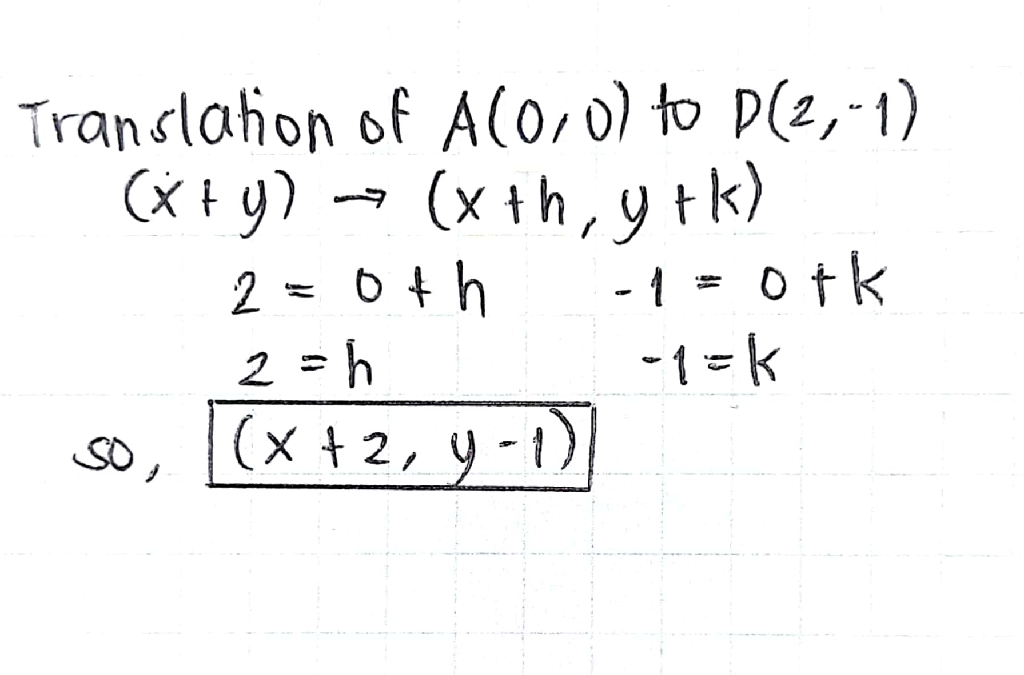 Translation of A(0,0) to D(2,-1)
(x+y) → (x+h, y+k)
2 = 0+h -1 = 0+k
2 = h -1=k
so, (x+2, y-1)